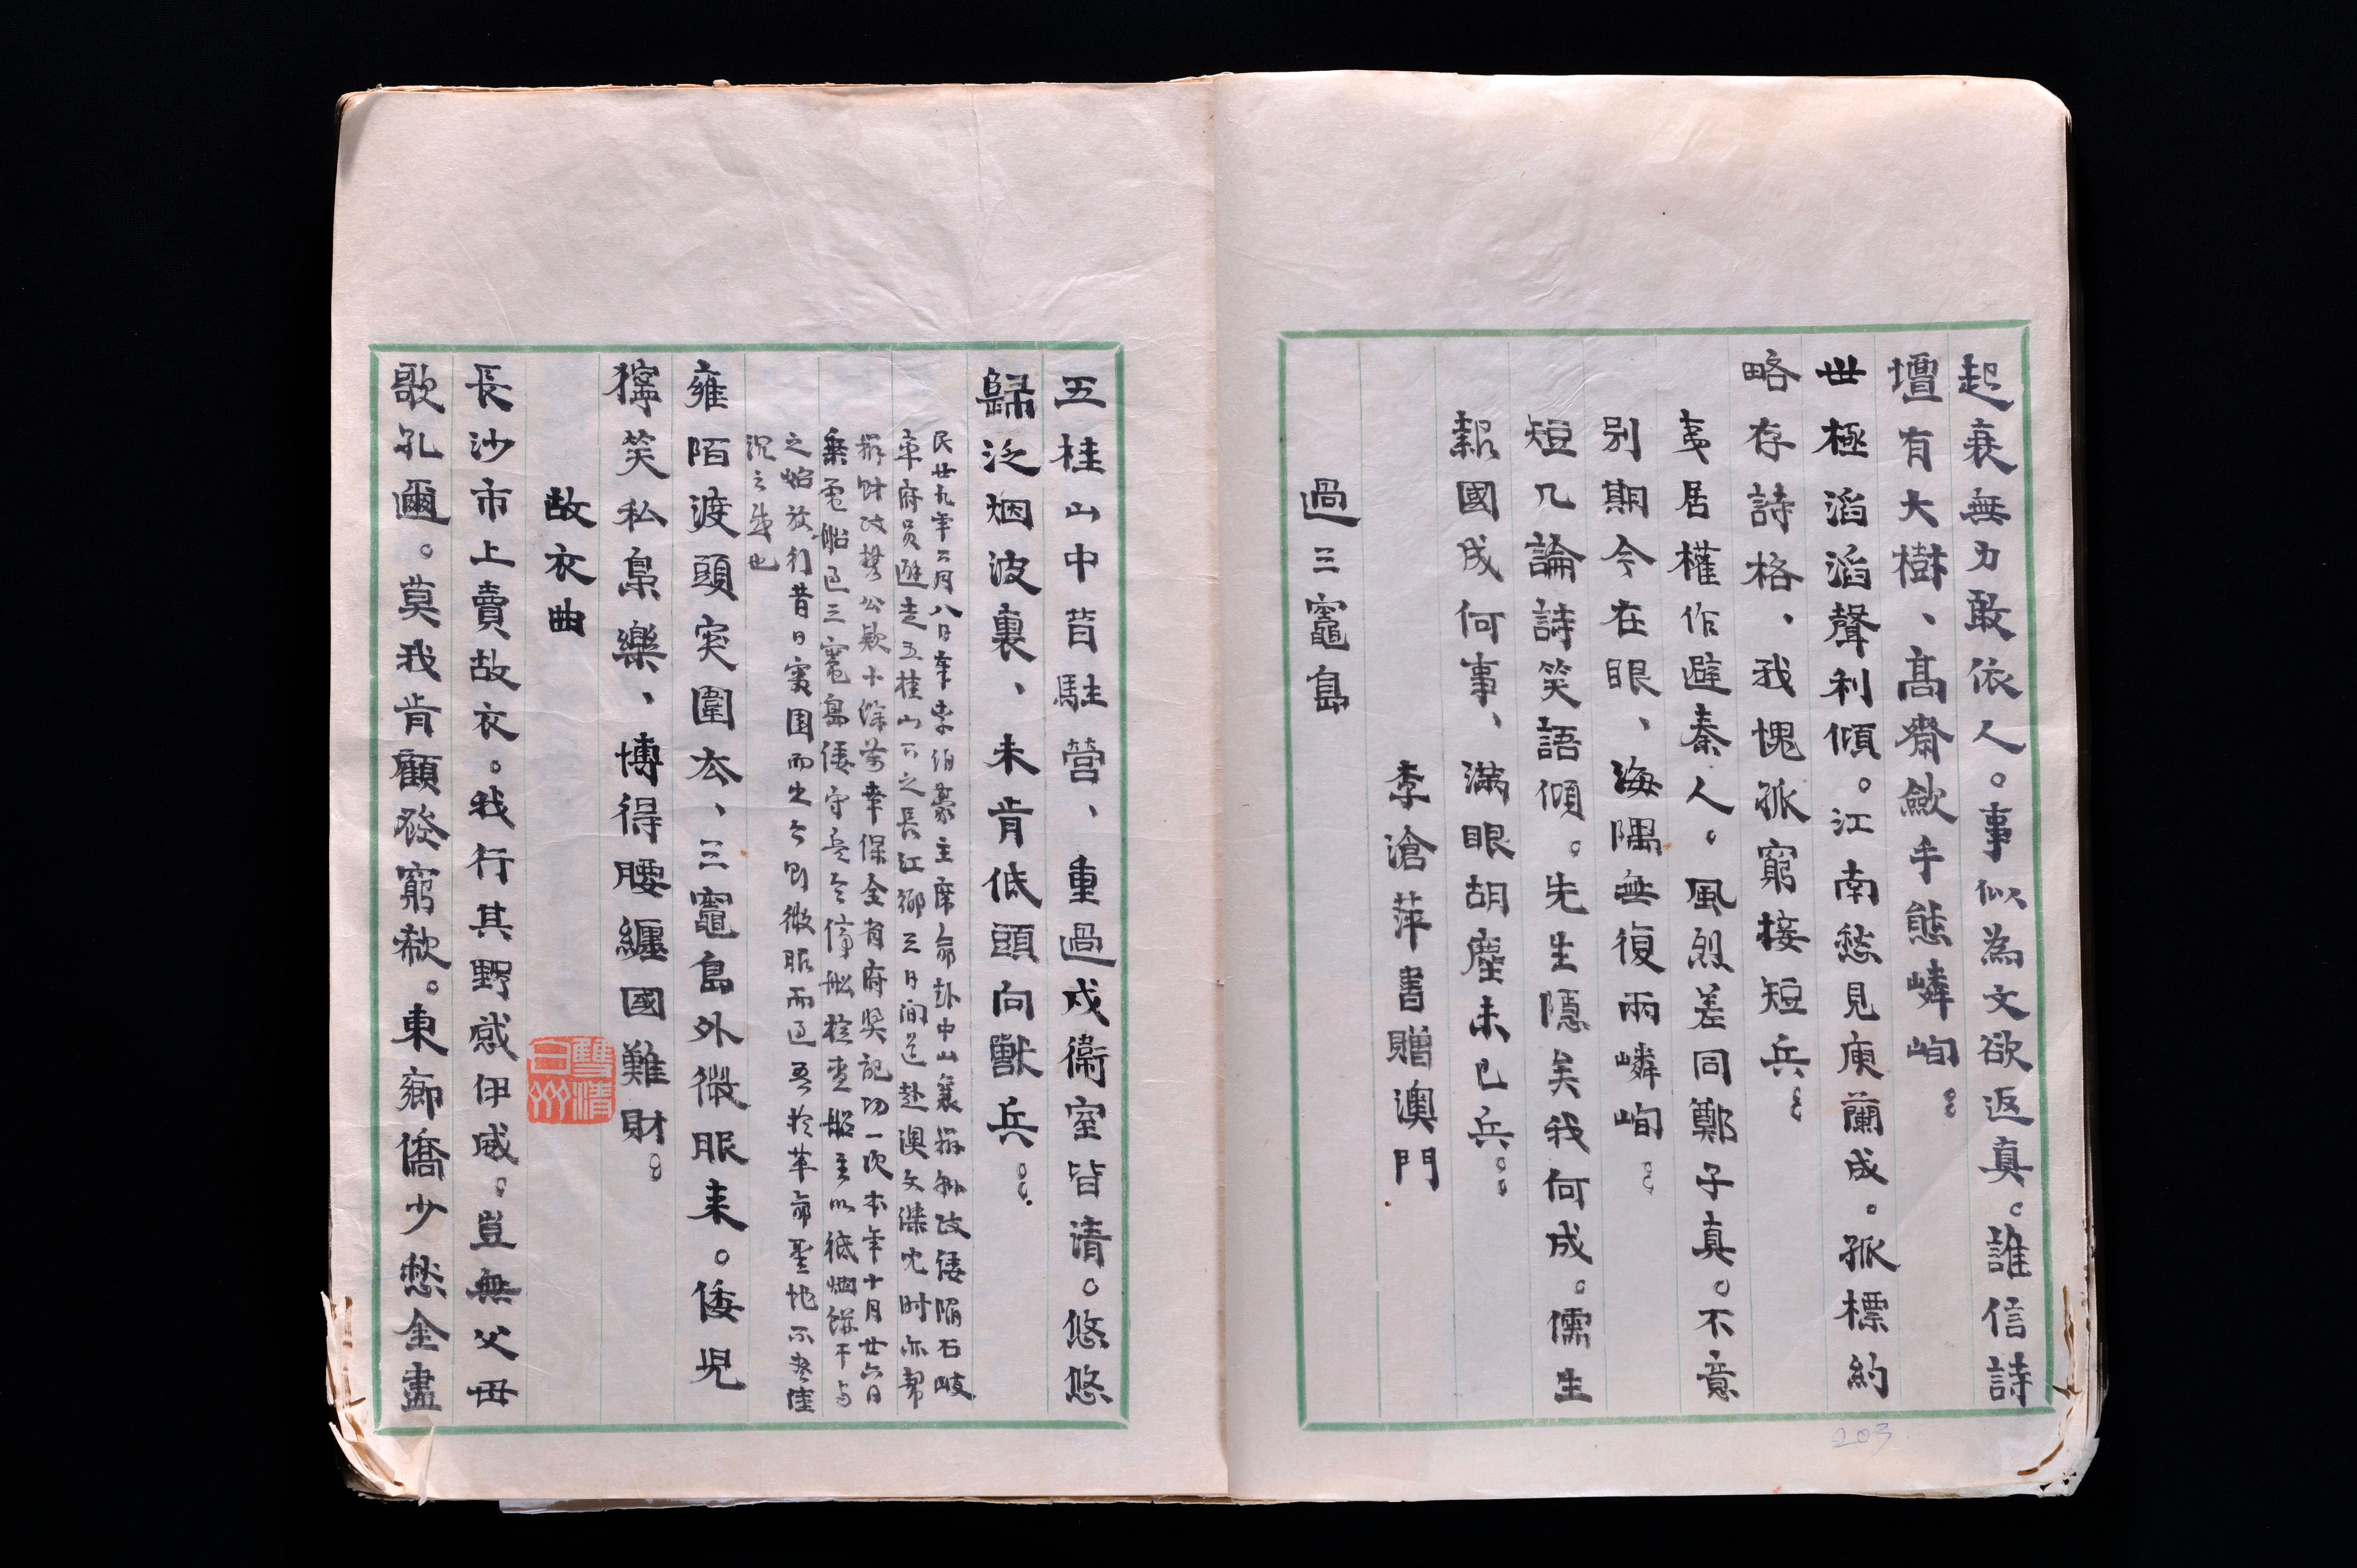 起衰無力敢依人。事似為文欲返真。誰信詩
壇有大樹、高齋斂手態嶙峋。
世極滔滔聲利傾。江南愁見庾蘭成。孤標約
略存詩格、我愧孤窮接短兵。
夷居權作避秦人。風烈差同鄭子真。不意
別期今在眼、海隅無復兩嶙峋。
短几論詩笑語傾。先生隱矣我何成。儒生
報國成何事、滿眼胡塵未已兵。
李滄萍書贈澳門
過三竈島
203
五桂山中昔駐營、重過戍衛室皆清。悠悠
歸泛烟波裏、未肯低頭向獸兵。
民廿九年三月八日奉李伯豪主席命赴中山襄辦縣政倭陷石岐
率府員避走五桂山下之長江鄉三日間道赴澳文傑兄時亦幫
辦財政携公款十餘萬幸保全省府奬記功一次本年十月廿六日
乘電船過三竈島倭守兵令停船檢查船主以紙烟餅干與
之始放行昔日突围而出今則微服而過吾於革命聖地不盡陸
沉之感也
雍陌渡頭突圍去、三竈島外微服來。倭児
獰笑私梟樂、博得腰纏國難財。
故衣曲
雙清
白州
長沙市上賣故衣。我行其野感伊威。豈無父母
歌孔邇。莫我肯顧發窮欷。東鄉僑少愁金盡